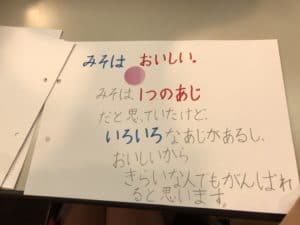 みそは おいしい.
みそは、1つのあじ
だと思っていたけど、
いろいろなあじがあるし、
おいしいから
きらいな人でもがんばれ
ると思います。